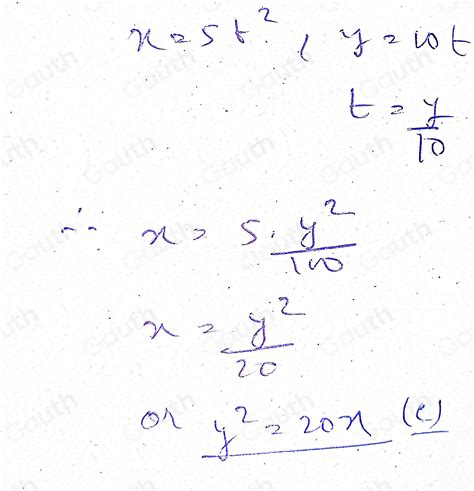 x = 5t², y = 10t
t = y/10
∴ x = 5 · y²/100
x = y²/20
or y² = 20x (c)